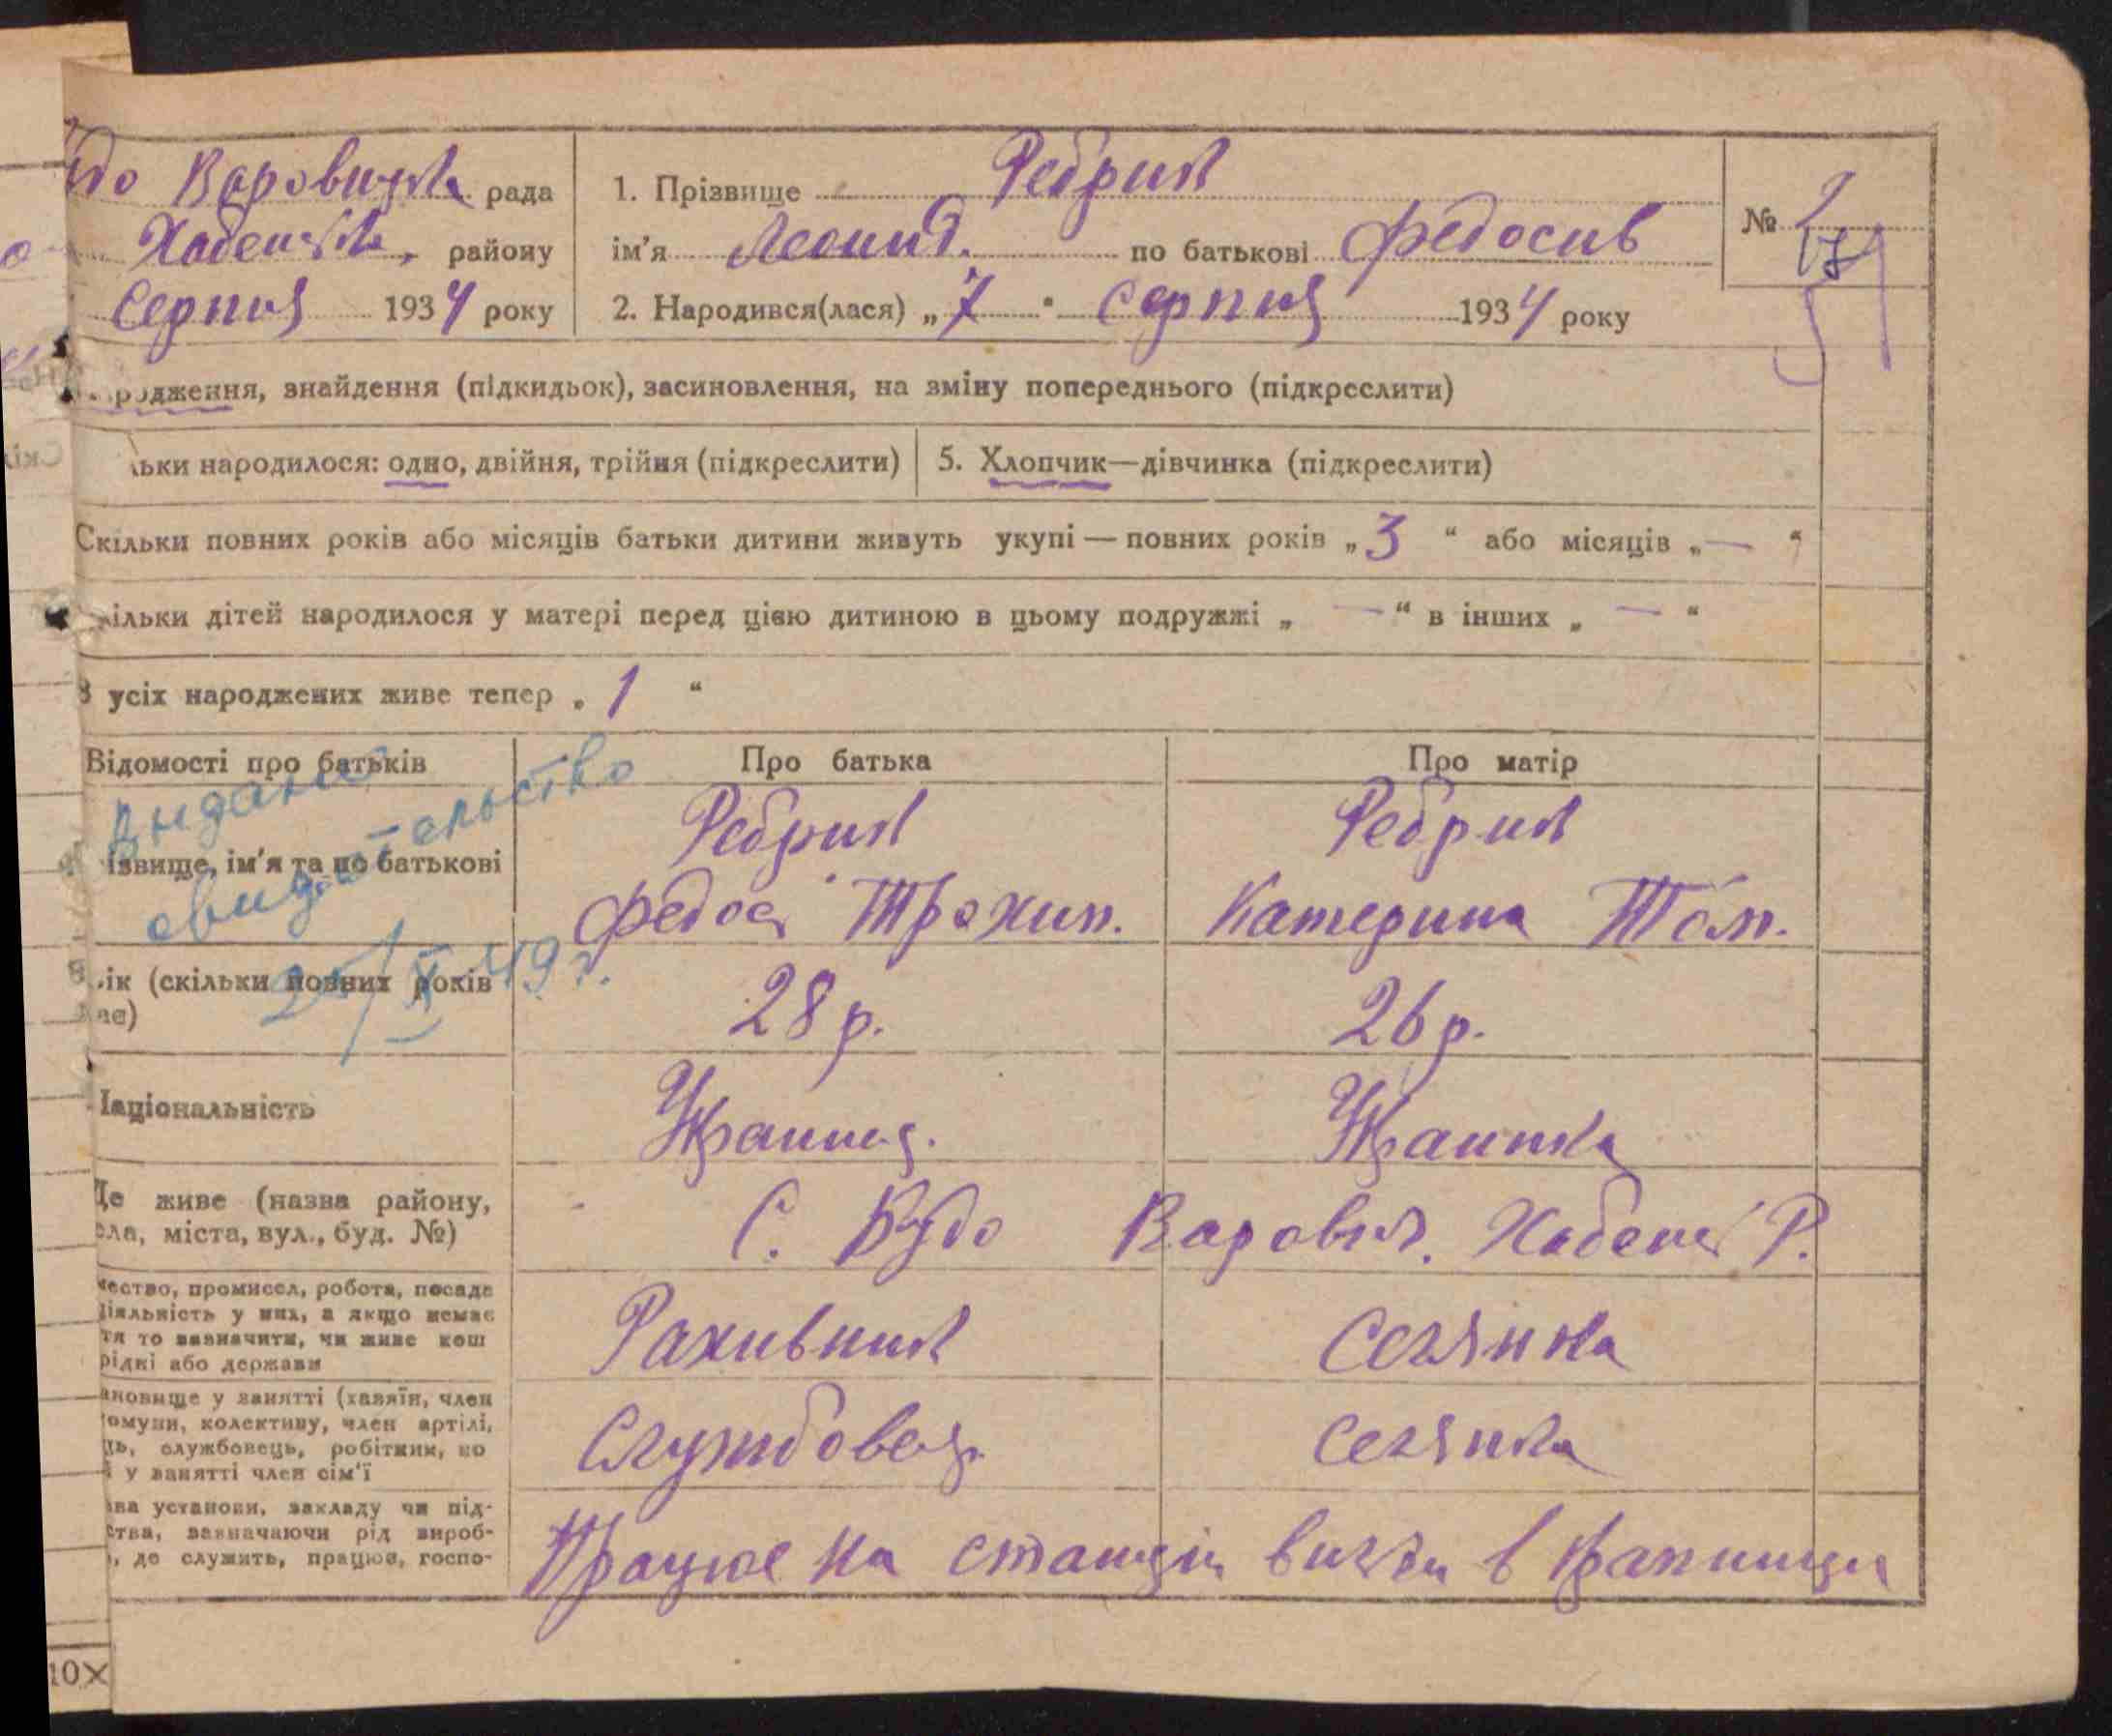 Будо Варовицька рада
Хабенськ. району
Серпня 1934 року
1. Прізвище Ребрик
ім'я Леонид. по батькові Федосів
2. Народився(лася) „7" Серпня 1934 року
№
родження, знайдення (підкидьок), засиновлення, на зміну попереднього (підкреслити)
льки народилося: одно, двійня, трійня (підкреслити)
5. Хлопчик—дівчинка (підкреслити)
Скільки повних років або місяців батьки дитини живуть укупі — повних років „3" або місяців „—"
кільки дітей народилося у матері перед цією дитиною в цьому подружжі „—" в інших „—"
З усіх народжених живе тепер „1"
Відомості про батьків
Про батька
Про матір
Выдано
свидетельство
25/X 49 г.
ізвище, ім'я та по батькові
Ребрик
Федос Трохим.
Ребрик
Катерина Том.
Вік (скільки повних років
має)
28 р.
26 р.
Національність
Українец.
Українка
Де живе (назва району,
села, міста, вул., буд. №)
С. Будо Варович. Хабенс Р.
ество, промисел, робота, посада
діяльність у них, а якщо немає
тя то зазначити, чи живе кош
рідні або держави
Рахивник
Селянка
ановище у занятті (хазяїн, член
омуни, колективу, член артілі,
ць, службовець, робітник, по
і у занятті член сім'ї
Службовец.
Селянка
ва установи, закладу чи під-
ства, зазначаючи рід вироб-
, де служить, працює, госпо-
Працює на станции в
10X